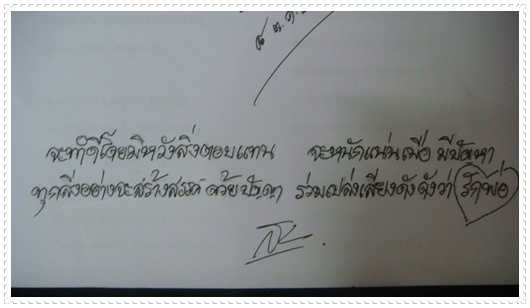 ๕ ธ.ค.
จะทำดีโดยมิหวังสิ่งตอบแทน จะหนักแน่นเมื่อ มีปัญหา
ทุกสิ่งอย่างจะสร้างสรรค์ ด้วยปัญญา ร่วมเปล่งเสียงดังดังว่า รักพ่อ